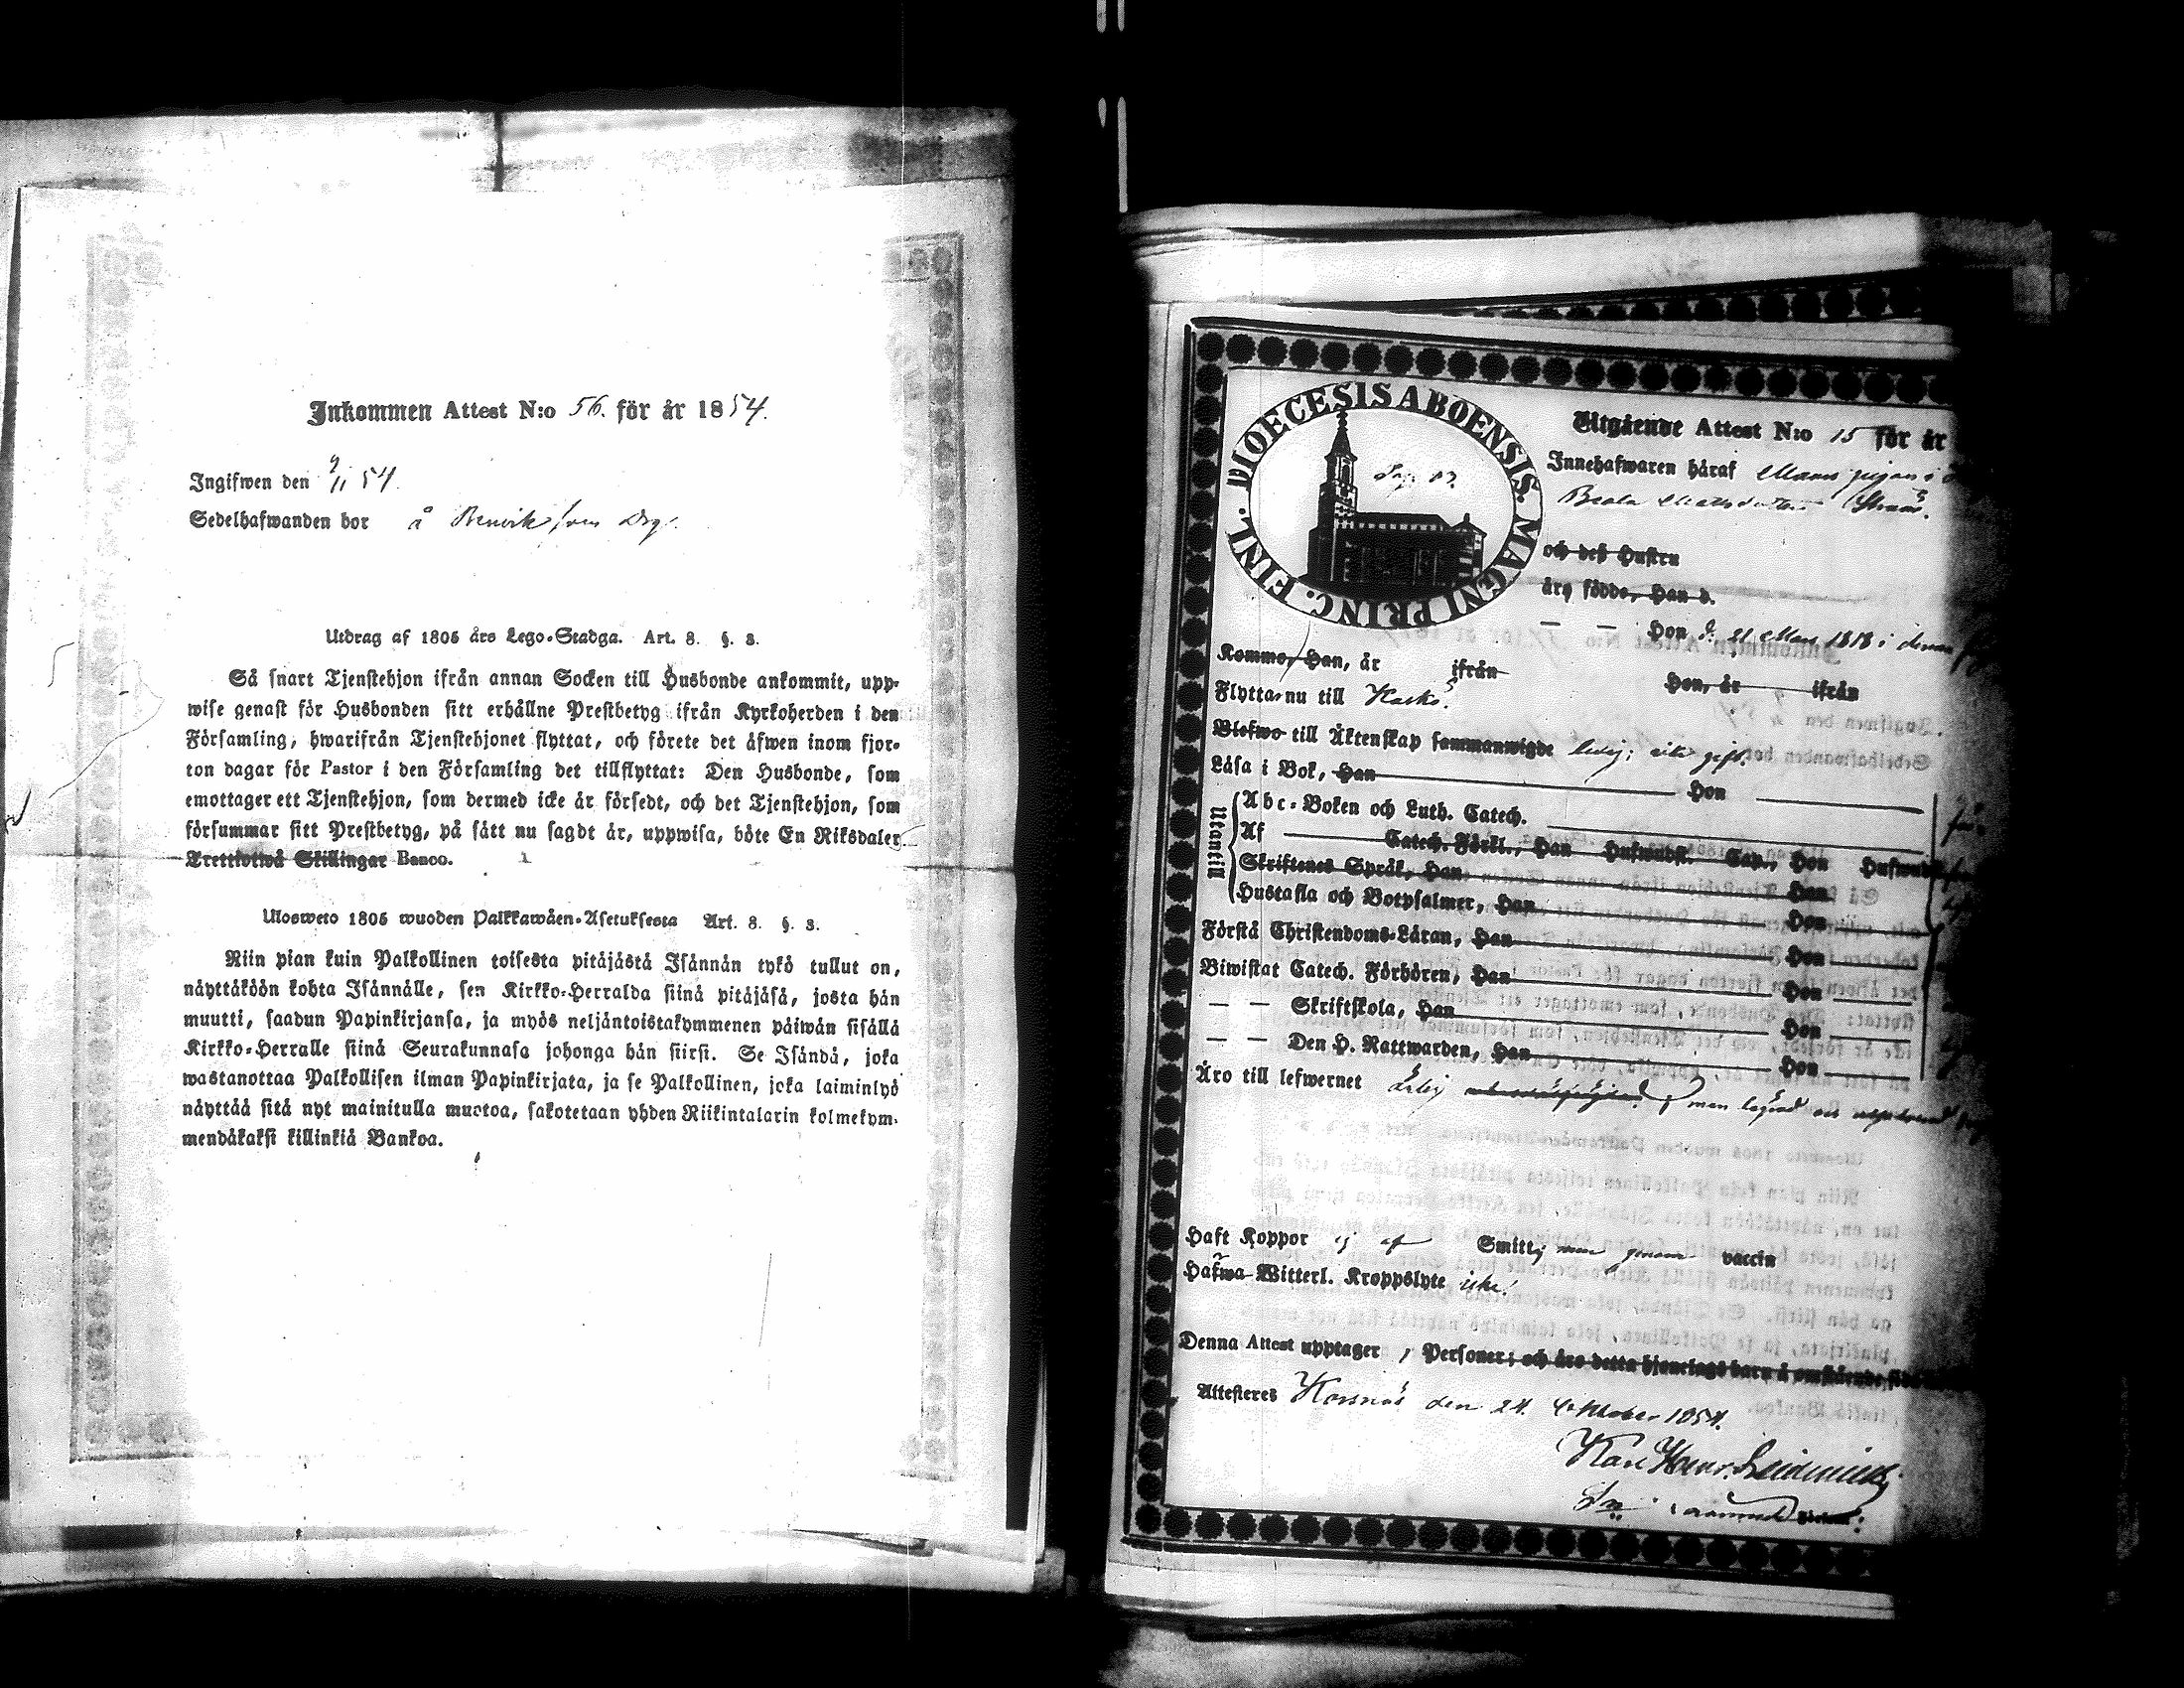 Inkommen Attest N:o 56. för år 1854.
Ingifwen den 9/11 54.
Sedelhafwanden bor å
Utdrag af 1805 års Lego-Stadga. Art. 8. §. 3.
Så snart Tjenstehjon ifrån annan Socken till Husbonde ankommit, upp-
wise genast för Husbonden sitt erhållne Prestbetyg ifrån Kyrkoherden i den
Församling, hwarifrån Tjenstehjonet flyttat, och förete det åfwen inom fjor-
ton dagar för Pastor i den Församling det tillflyttat: Den Husbonde, som
emottager ett Tjenstehjon, som dermed icke år försedt, och det Tjenstehjon, som
försummar sitt Prestbetyg, på sått nu sagdt år, uppwisa, böte En Riksdaler
Trettiotwå Skillingar Banco.
Ulosweto 1805 wuoden Palkkawåen-Asetuksesta Art. 8. §. 3.
Niin pian kuin Palkollinen toisesta pitåjåstå Isånnån tykö tullut on,
nåyttåköön kohta Isånnålle, sen Kirkko-Herralda siinå pitåjåså, josta hån
muutti, saadun Papinkirjansa, ja myös neljåntoistakymmenen påiwån sisållå
Kirkko-Herralle siinå Seurakunnasa johonga hån siirsi. Se Isåndå, joka
wastanottaa Palkollisen ilman Papinkirjata, ja se Palkollinen, joka laiminlyö
nåyttåå sitå nyt mainitulla muotoa, sakotetaan yhden Riikintalarin kolmekym-
mendåkaksi killinkiå Bankoa.
DIOECESIS ABOENSIS. MAGNI PRINC. FINL.
Utgående Attest N:o 15 för år
Innehafwaren håraf
Beata
och deß Hustru
åro födde, Han d.
— — Hon d. 21 Mars 1818 i
Komme, Han, år ifrån Hon, år ifrån
Flytta nu till Kaskö.
Blefwo till Åktenskap sammanwigde ledig; gift.
Låsa i Bok, Han Hon
Utantill
Abc-Boken och Luth. Catech.
Af Catech. Förkl., Han Hufwudst. Cap., Hon
Skriftenes Språk, Han Hon
Hustafla och Botpsalmer, Han Hon
Förstå Christendoms-Låran, Han Hon
Biwistat Catech. Förhören, Han Hon
— — Skriftskola, Han Hon
— — Den H. Nattwarden, Han Hon
Åro till lefwernet men
Haft Koppor ej af Smitta men genom vaccin
Hafwa Witterl. Kroppslyte icke!
Denna Attest upptager 1 Personer; och åro detta hjonelags barn å omstående
Attesteres Korsnäs den 24. Oktober 1854.
Karl Henr.